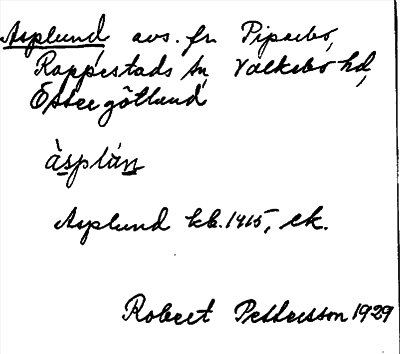 Asplund avs. fr. Piparbo,
Rappestads sn, Valkebo hd,
Östergötland
àsplàn
Asplund kb. 1915, ek.
Robert Pettersson 1929